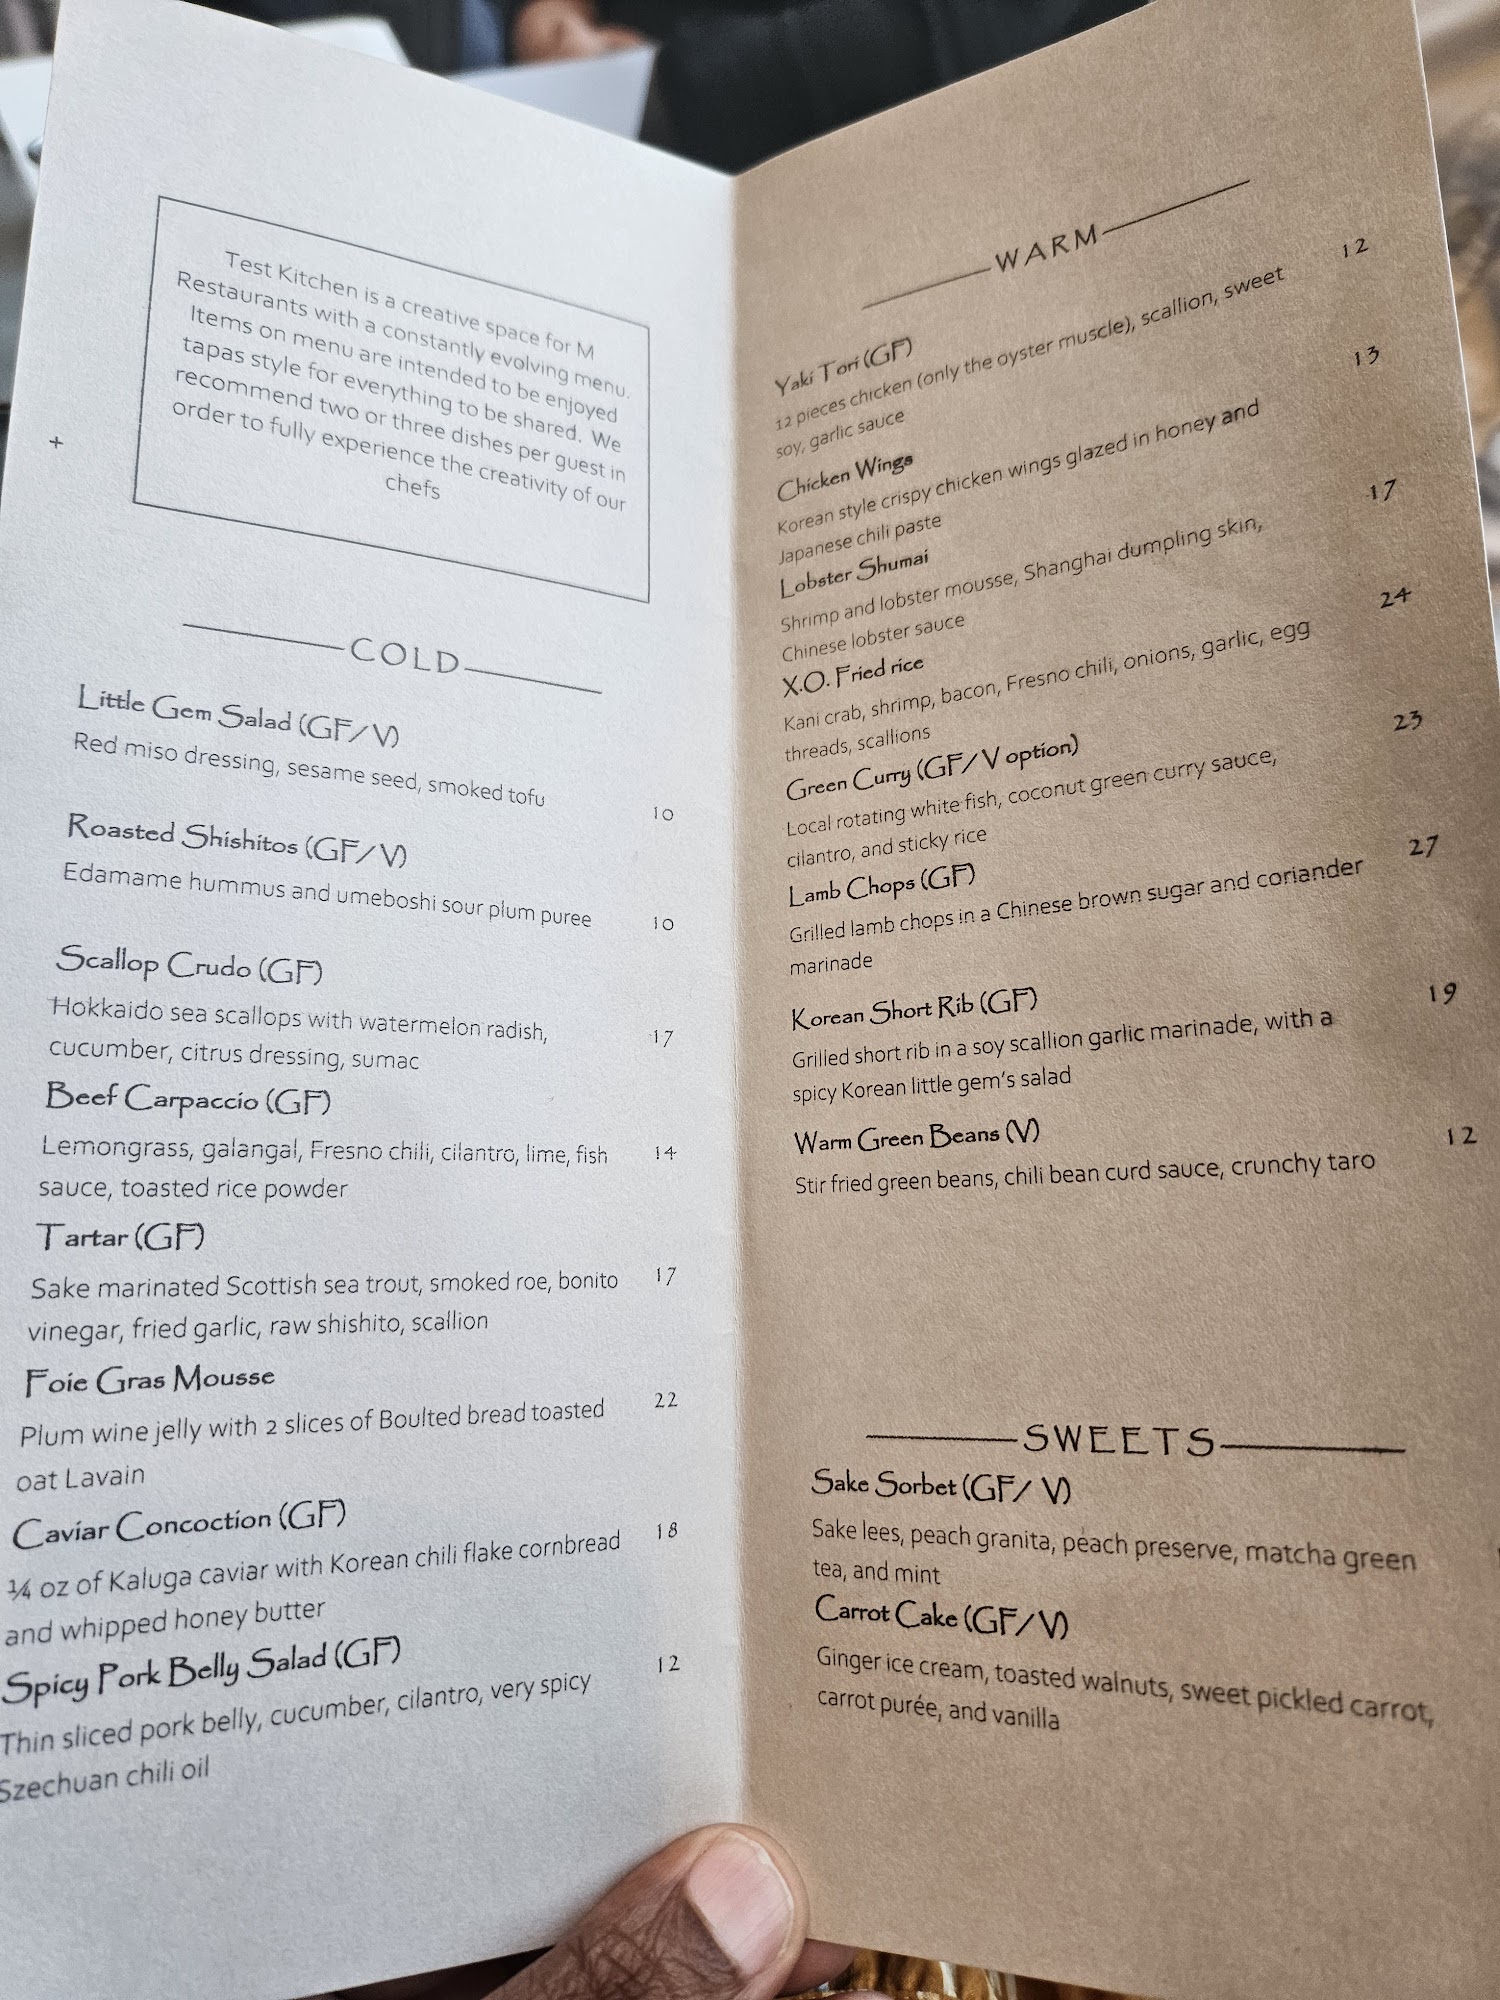 Test Kitchen is a creative space for M
Restaurants with a constantly evolving menu.
Items on menu are intended to be enjoyed
tapas style for everything to be shared. We
recommend two or three dishes per guest in
order to fully experience the creativity of our
chefs
COLD
Little Gem Salad (GF/V)
Red miso dressing, sesame seed, smoked tofu 10
Roasted Shishitos (GF/V)
Edamame hummus and umeboshi sour plum puree 10
Scallop Crudo (GF)
Hokkaido sea scallops with watermelon radish, 17
cucumber, citrus dressing, sumac
Beef Carpaccio (GF)
Lemongrass, galangal, Fresno chili, cilantro, lime, fish 14
sauce, toasted rice powder
Tartar (GF)
Sake marinated Scottish sea trout, smoked roe, bonito 17
vinegar, fried garlic, raw shishito, scallion
Foie Gras Mousse
Plum wine jelly with 2 slices of Boulted bread toasted 22
oat Lavain
Caviar Concoction (GF)
¼ oz of Kaluga caviar with Korean chili flake cornbread 18
and whipped honey butter
Spicy Pork Belly Salad (GF)
Thin sliced pork belly, cucumber, cilantro, very spicy 12
Szechuan chili oil
WARM
Yaki Tori (GF)
12 pieces chicken (only the oyster muscle), scallion, sweet 12
soy, garlic sauce
Chicken Wings
Korean style crispy chicken wings glazed in honey and 13
Japanese chili paste
Lobster Shumai
Shrimp and lobster mousse, Shanghai dumpling skin, 17
Chinese lobster sauce
X.O. Fried rice
Kani crab, shrimp, bacon, Fresno chili, onions, garlic, egg 24
threads, scallions
Green Curry (GF/V option)
Local rotating white fish, coconut green curry sauce, 23
cilantro, and sticky rice
Lamb Chops (GF)
Grilled lamb chops in a Chinese brown sugar and coriander 27
marinade
Korean Short Rib (GF)
Grilled short rib in a soy scallion garlic marinade, with a 19
spicy Korean little gem's salad
Warm Green Beans (V)
Stir fried green beans, chili bean curd sauce, crunchy taro 12
SWEETS
Sake Sorbet (GF/ V)
Sake lees, peach granita, peach preserve, matcha green
tea, and mint
Carrot Cake (GF/V)
Ginger ice cream, toasted walnuts, sweet pickled carrot,
carrot purée, and vanilla